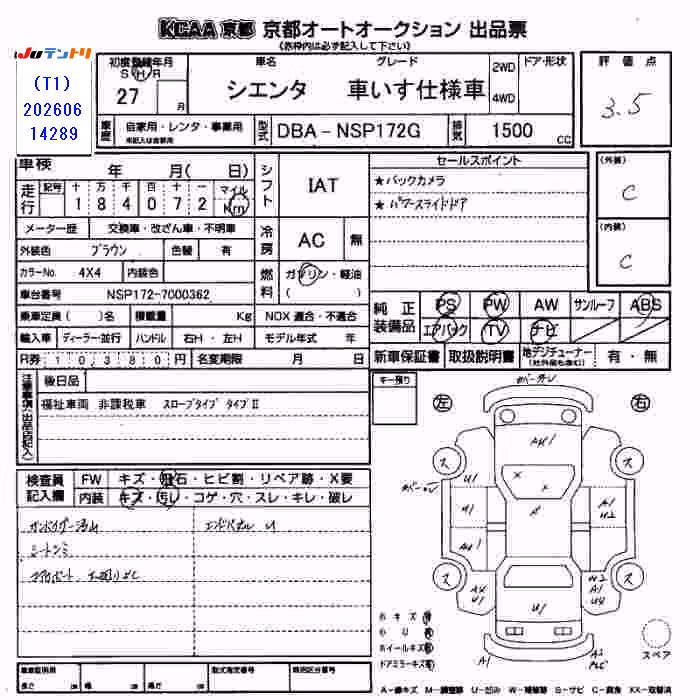 KCAA 京都 京都オートオークション 出品票
(赤枠内は必ず記入して下さい)
JUテントリ
(T1)
202606
14289
初度登録年月
S H R
27 月
車名
シエンタ
グレード
車いす仕様車
2WD
4WD
ドア・形状
評価点
3.5
車歴
自家用・レンタ・事業用
未記入は自家用
型式
DBA - NSP172G
排気
1500
CC
車検 年 月( 日)
走行
記号 十 万 千 百 十 一 マイル
1 8 4 0 7 2 Km
シフト
IAT
セールスポイント
★バックカメラ
★パワースライドドア
(外装)
C
(内装)
C
メーター歴 交換車・改ざん車・不明車
冷房
AC
無
外装色 ブラウン 色替 有
カラーNo. 4X4 内装色
燃料
ガソリン・軽油
( )
車台番号 NSP172-7000362
乗車定員( )名 積載量 Kg NOX 適合・不適合
輸入車 ディーラー・並行 ハンドル 右H・左H モデル年式 年
純正装備品
PS PW AW サンルーフ ABS
エアバック TV ナビ
R券 10380円 名変期限 月 日
新車保証書 取扱説明書 地デジチューナー 有・無
注意事項(出品店記入)
後日品
福祉車両 非課税車 スロープタイプ タイプⅡ
キー預り
左
右
検査員記入欄
FW キズ・飛石・ヒビ割・リペア跡・X要
内装 キズ・汚レ・コゲ・穴・スレ・キレ・破レ
エンドパネル U
シートシミ
ス
ス
ス
ス
AU1
U1
U1
AU1
A1
U2
U1
A1
スペア
6 キズ
6 U
ホイールキズ
ドアミラーキズ
車庫証明用
長さ cm 幅 cm 高さ cm
型式指定番号
類別区分番号
A-線キズ M-調整跡 U-凹み W-補修跡 S-サビ C-腐食 XX-交換済